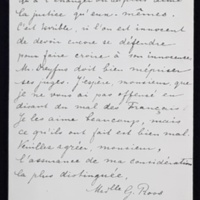 de à l'échanger ou
la justice qu'eux-mêmes.
C'est terrible, il on est innocent
de devoir encore se défendre
pour faire croire à son innocence
M. Dreyfus doit bien mépriser
ses juges. J'espère, monsieur, que
je ne vous ai pas offensé en
disant du mal des Français.
Je les aime beaucoup, mais
ce qu'ils ont fait est bien mal
Veuillez agréer, monsieur,
l'assurance de ma considération
la plus distinguée.
Melle G.